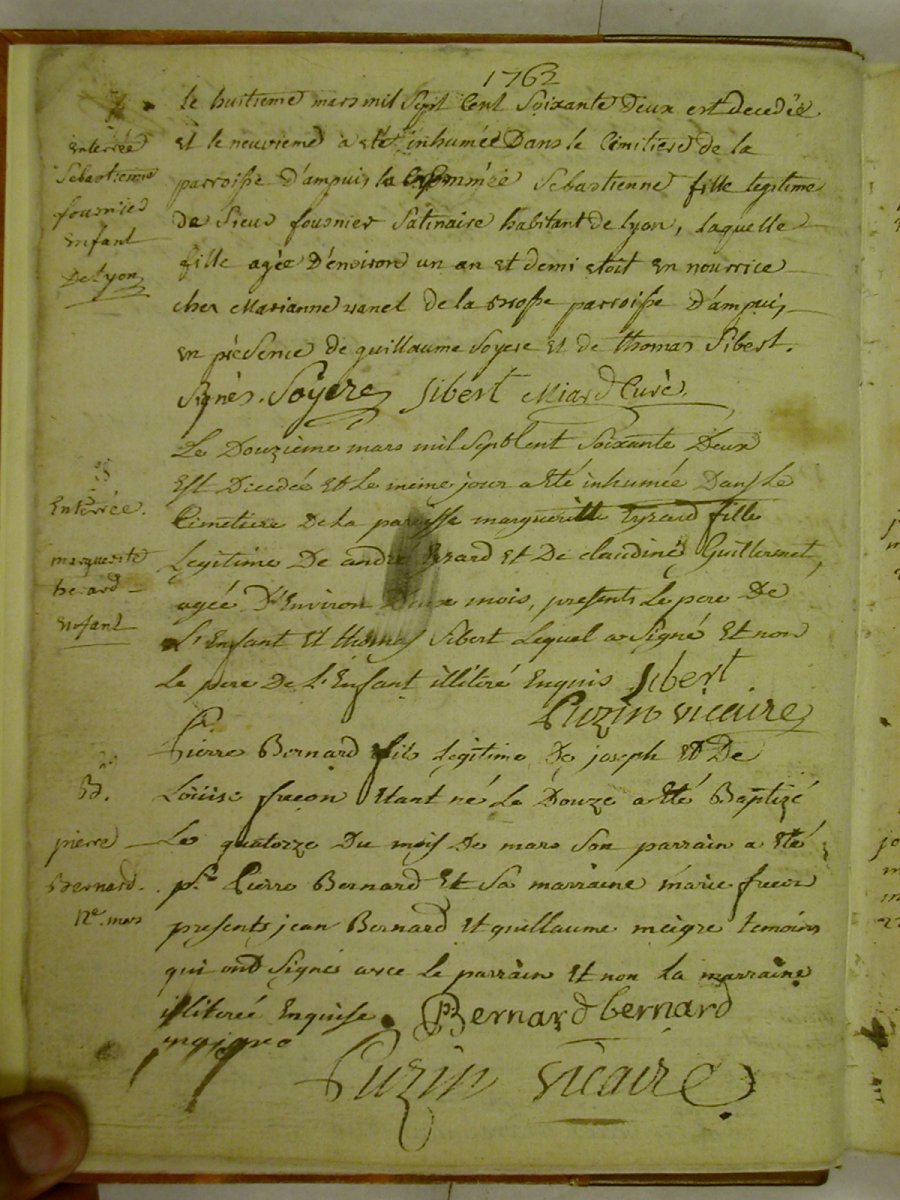 1762
le huitieme mars mil Sept Cent Soixante Deux est decedée
enterrée
Sebastienne
fournier
enfant
De Lyon
et le neuvieme à eté inhumée Dans le Cimitiere de la
parroisse D'ampuis la Sebastienne fille legitime
de Sieur fournier Satinaire habitant de lyon, laquelle
fille agée D'environ un an et demi etoit en nourrice
chez Marianne vanel de la brosse parroisse D'ampuis,
en présence de guillaume Soyere et de thomas Sibert.
Signés. Soyere Sibert Miard Curé.
Le Douzième mars mil Sept Cent Soixante Deux
Enterrée.
marguerite
enfant
Est Decedée et Le même jour a été inhumée Dans Le
Cimetiere De La paroisse marguerite Eyrard fille
Legitime De andré Eyrard et De claudine Guillermet,
agée D'Environ Deux mois, presents Le pere De
L'Enfant Et thomas Sibert Lequel a Signé Et non
Le pere De L'Enfant illitéré Enquis Sibert
Puzin vicaire
B.
pierre
Bernard.
12e. mars
Pierre Bernard fils Légitime De joseph Et De
Loüise freçon Etant né Le Douze a été Baptizé
Le quatorze Du mois De mars Son parrain a été
pre. Pierre Bernard Et Sa marraine marie freçon
presents jean Bernard Et guillaume meigre temoins
qui ont Signés avec Le parrain Et non La marraine
illiterée Enquise. P. Bernard bernard
Puzin vicaire